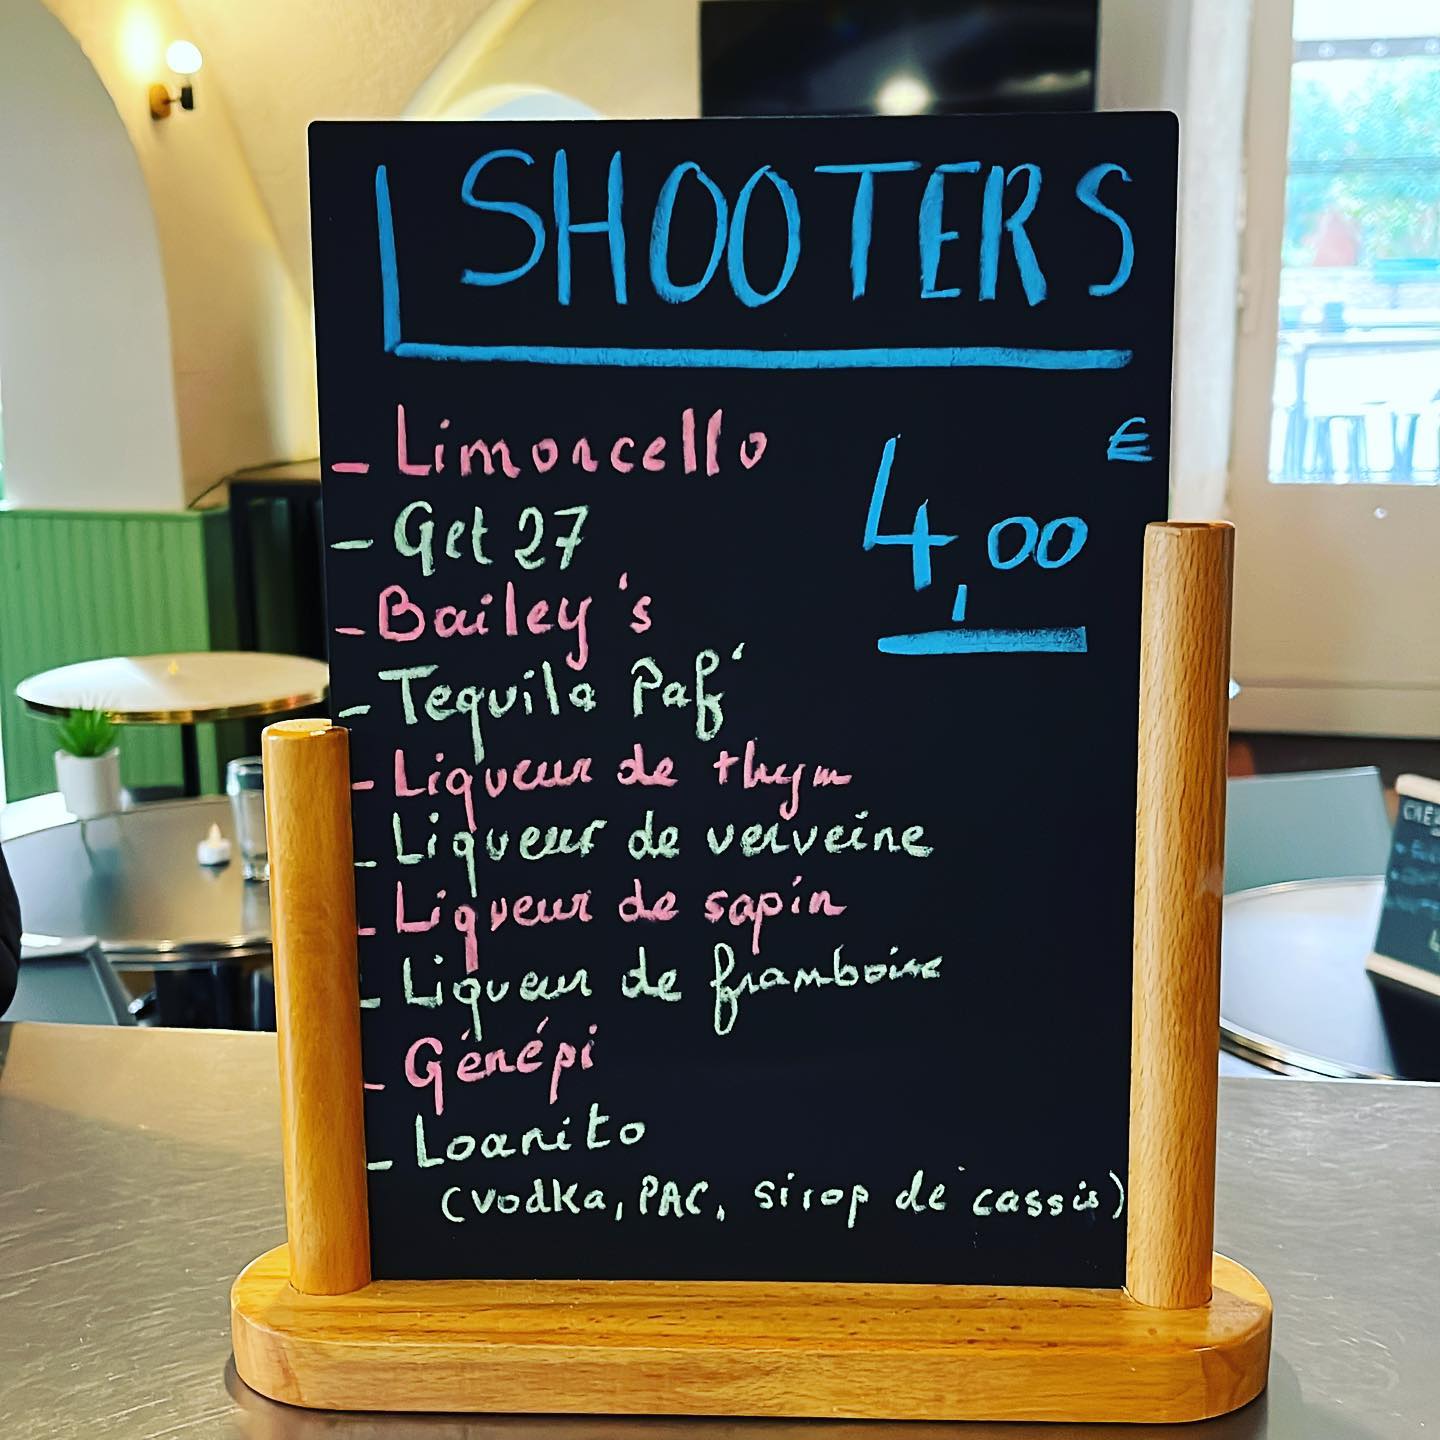 SHOOTERS
- Limoncello
- Get 27
- Bailey's
- Tequila Paf'
- Liqueur de thym
- Liqueur de verveine
- Liqueur de sapin
- Liqueur de framboise
- Génépi
- Loanito
(vodka, PAC, sirop de cassis)
4,00 €